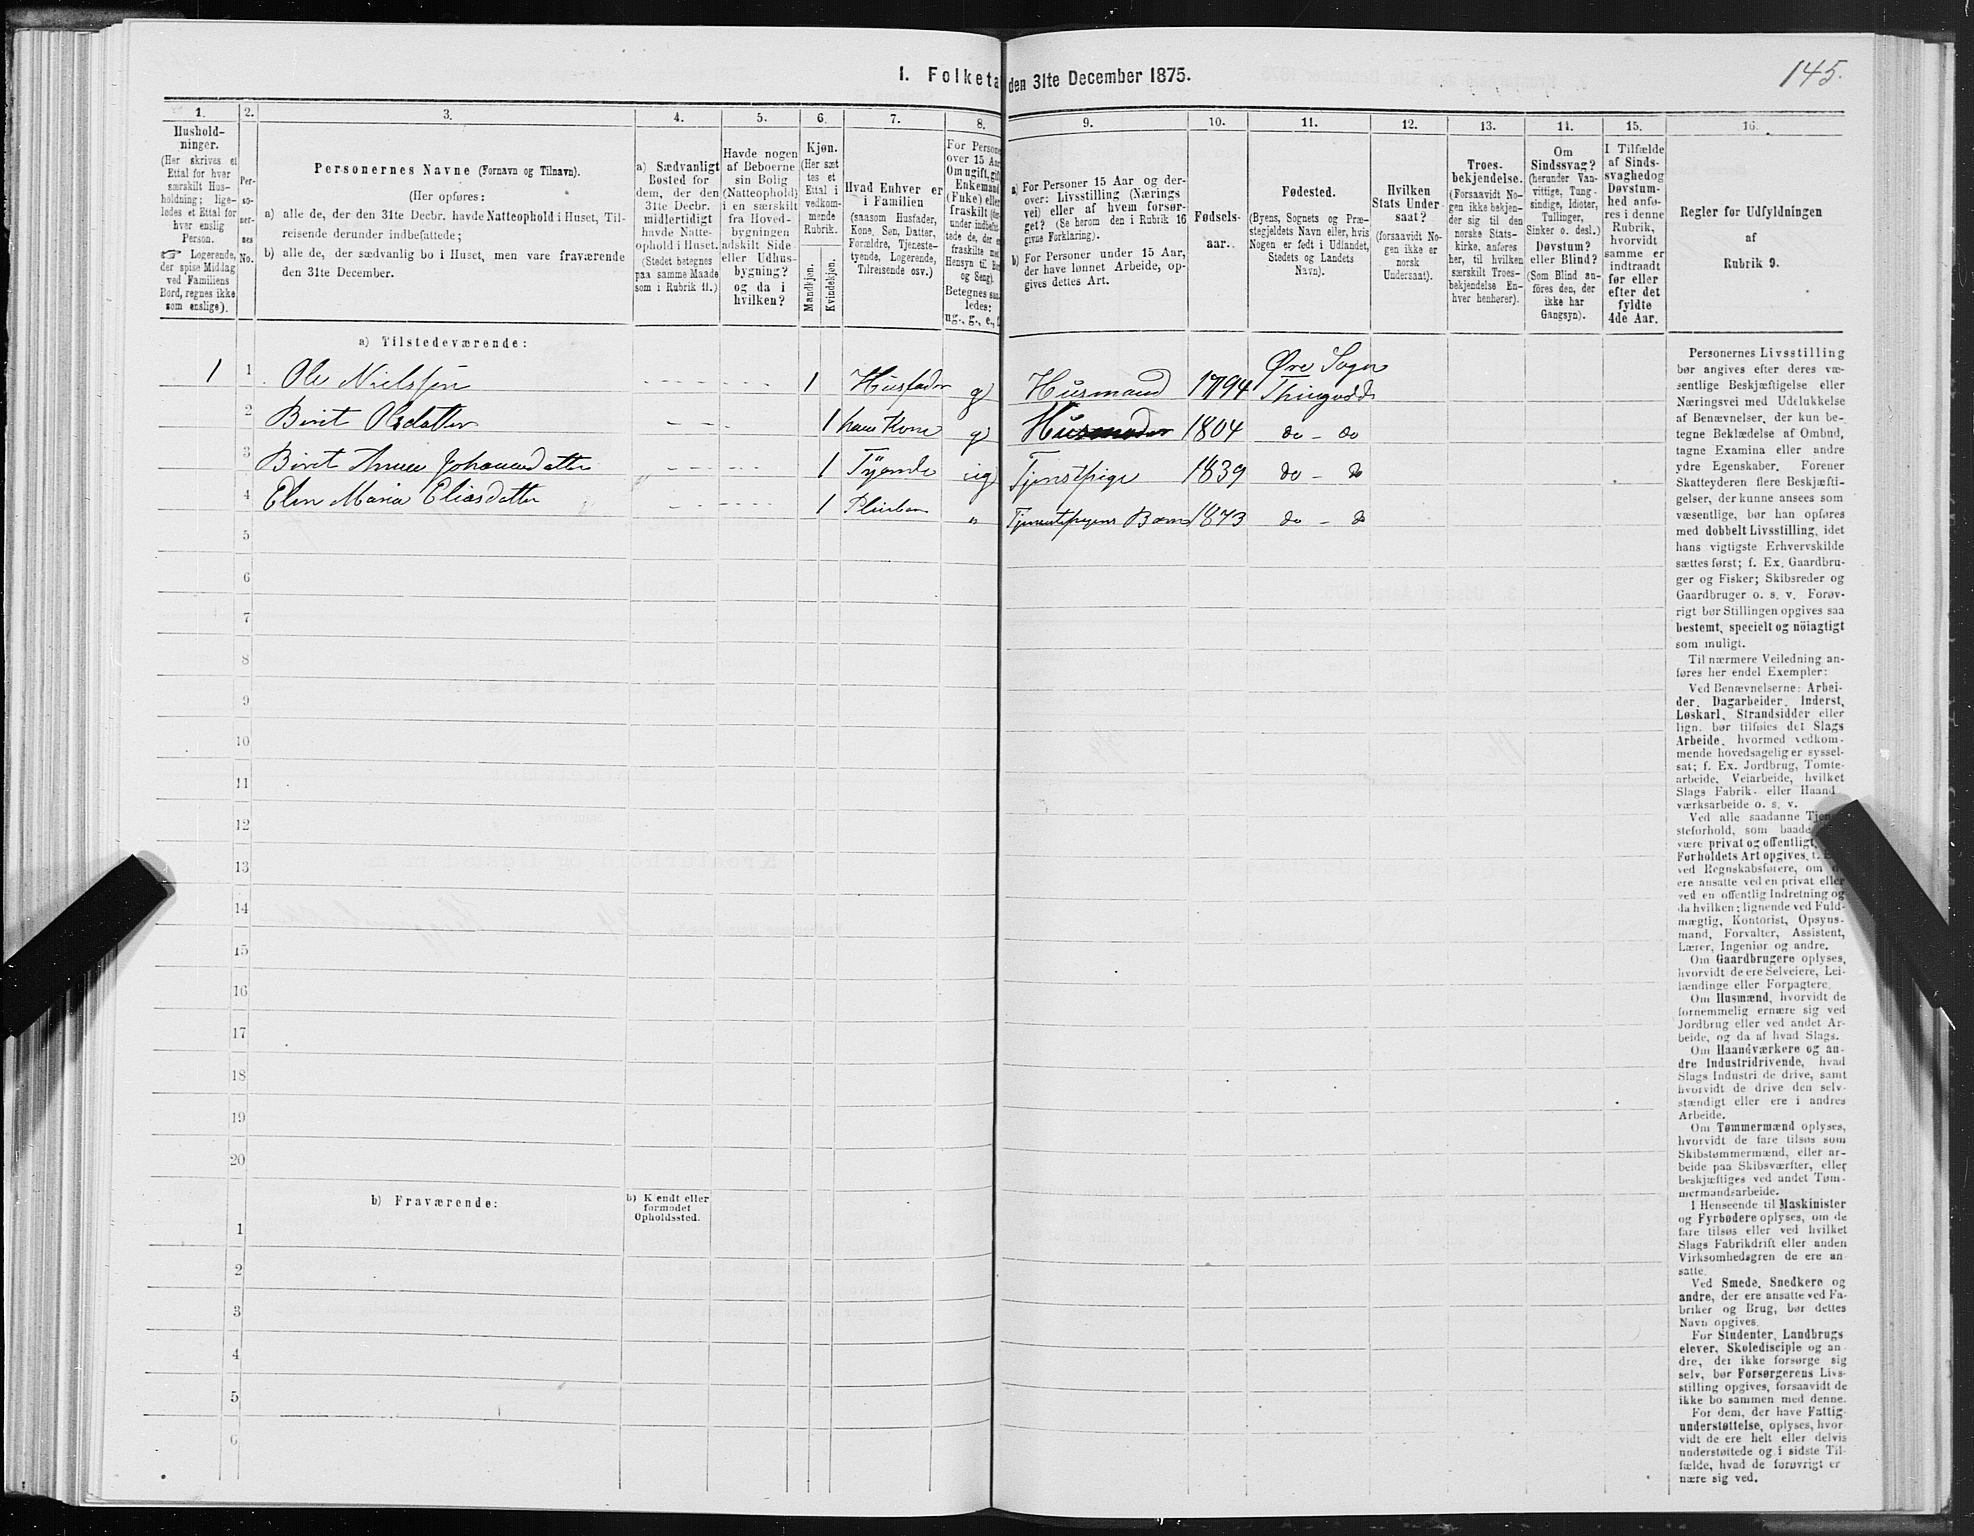 145.
I. Folketa den 31te December 1875.
1. 2. 3. 4. 5. 6. 7. 8. 9. 10. 11. 12. 13. 14. 15. 16.
Hushold-
ninger.
(Her skrives et
Ettal for hver
særskilt Hus-
holdning; lige-
ledes et Ettal for
hver enslig
Person.
☞ Logerende,
der spise Middag
ved Familiens
Bord, regnes ikke
som enslige).
Per-
so-
ner-
nes
No.
Personernes Navne (Fornavn og Tilnavn).
(Her opføres:
a) alle de, der den 31te Decbr. havde Natteophold i Huset, Til-
reisende derunder indbefattede;
b) alle de, der sædvanlig bo i Huset, men vare fraværende
den 31te December.
a) Sædvanligt
Bosted for
dem, der den
31te Decbr.
midlertidigt
havde Natte-
ophold i Huset.
(Stedet betegnes
paa samme Maade
som i Rubrik 11.)
Havde nogen
af Beboerne
sin Bolig
(Natteophold)
i en særskilt
fra Hoved-
bygningen
adskilt Side-
eller Udhus-
bygning?
og da i
hvilken?
Kjøn.
(Her sæt-
tes et
Ettal i
vedkom-
mende
Rubrik.
Mandkjøn.
Kvindekjøn.
Hvad Enhver er
i Familien
(saasom Husfader,
Kone, Søn, Datter,
Forældre, Tjeneste-
tyende, Logerende,
Tilreisende osv.)
For Persone
over 15 Aar
Om ugift, gift
Enkemand
(Enke) eller
fraskilt (der
under indbefat-
tede de, der e
fraskilte med
Hensyn til Bo
og Seng).
Betegnes saa
ledes:
ug., g., e., f.
a) For Personer 15 Aar og der-
over: Livsstilling (Nærings
vei) eller af hvem forsør-
get? (Se herom den i Rubrik 16
givne Forklaring).
b) For Personer under 15 Aar,
der have lønnet Arbeide, op-
gives dettes Art.
Fødsels-
aar.
Fødested.
(Byens, Sognets og Præ-
stegjeldets Navn eller, hvis
Nogen er født i Udlandet,
Stedets og Landets
Navn).
Hvilken
Stats Under
saat?
(forsaavidt No-
gen ikke er
norsk
Undersaat).
Troes-
bekjendelse.
(Forsaavidt No-
gen ikke bekjen-
der sig til den
norske Stats-
kirke, anføres
her, til hvilken
særskilt Troes-
bekjendelse En-
hver henhører).
Om
Sindssvag?
(herunder Van-
vittige, Tung-
sindige, Idioter,
Tullinger,
Sinker o. desl.)
Døvstum?
eller Blind?
(Som Blind an-
føres den, der
ikke har
Gangsyn).
I Tilfælde
af Sinds-
svaghed og
Døvstum-
hed anfø-
res i denne
Rubrik,
hvorvidt
samme er
indtraadt
før eller
efter det
fyldte
4de Aar.
Regler for Udfyldningen
af
Rubrik 9.
a) Tilstedeværende:
Øre Sogn
1 1 Ole Nielssøn 1 Husfader g Husmand 1794 Thingvold
2 Berit Olsdatter 1 hans Kone g 1804 do - do
3 Berit Anne Johannesdatter 1 Tyende ug Tjenstpige 1839 do - do
4 Elen Maria Eliasdatter 1 Pleiebarn " Tjenestepigens Barn 1873 do - do
5
6
7
8
9
10
11
12
13
14
15
16
17
18
19
20
b) Fraværende:
b) Kjendt eller
formodet
Opholdssted.
1
2
3
4
5
6
Personernes Livsstilling
bør angives efter deres væ-
sentlige Beskjæftigelse eller
Næringsvei med Udelukkelse
af Benævnelser, der kun be-
tegne Beklædelse af Ombud,
tagne Examina eller andre
ydre Egenskaber. Forener
Skatteyderen flere Beskjæfti-
gelser, der kunne ansees som
væsentlige, bør han opføres
med dobbelt Livsstilling, idet
hans vigtigste Erhvervskilde
sættes først; f. Ex. Gaardbru-
ger og Fisker; Skibsreder og
Gaardbruger o. s. v. Forøv-
rigt bør Stillingen opgives saa
bestemt, specielt og nöiagtigt
som muligt.
Til nærmere Veiledning an-
føres her endel Exempler:
Ved Benævnelserne: Arbei-
der, Dagarbeider, Inderst,
Løskarl, Strandsidder eller
lign. bør tilføies det Slags
Arbeide, hvormed vedkom-
mende hovedsagelig er syssel-
sat; f. Ex. Jordbrug, Tomte-
arbeide, Veiarbeide, hvilket
Slags Fabrik- eller Haand
værksarbeide o. s. v.
Ved alle saadanne Tjene
steforhold, som baade
være privat og offentligt,
Forholdets Art opgives, t. Ex
ved Regnskabsførere, om
ere ansatte ved en privat eller
ved en offentlig Indretning og
da hvilken; lignende ved Fuld-
mægtig, Kontorist, Opsyns-
mand, Forvalter, Assistent,
Lærer, Ingeniør og andre.
Om Gaardbrugere oplyses,
hvorvidt de ere Selveiere, Lei-
lændinge eller Forpagtere.
Om Husmænd, hvorvidt de
fornemmelig ernære sig ved
Jordbrug eller ved andet Ar-
beide, og da af hvad Slags.
Om Haandværkere og an-
dre Industridrivende, hvad
Slags Industri de drive, samt
hvorvidt de drive den selv-
stændigt eller ere i andres
Arbeide.
Om Tømmermænd oplyses,
hvorvidt de fare tilsøs som
Skibstømmermænd, eller ar-
beide paa Skibsværfter, eller
beskjæftiges ved andet Tøm-
mermandsarbeide.
I Henseende til Maskinister
og Fyrbødere oplyses, om de
fare tilsøs eller ved hvilket
Slags Fabrikdrift eller anden
Virksomhedsgren de ere an-
satte.
Ved Smede, Snedkere og
andre, der ere ansatte ved Fa-
briker og Brug, bør dettes
Navn opgives.
For Studenter, Landbrugs
elever, Skoledisciple og an-
dre, der ikke forsørge sig
selv, bør Forsørgerens Livs-
stilling opgives, forsaavidt de
ikke bo sammen med denne.
For dem, der have Fattig-
understøttelse, oplyses, hvor-
vidt de ere helt eller delvis
understøttede og i sidste Til-
fælde, hvad de forøvrigt er
nære sig ved.